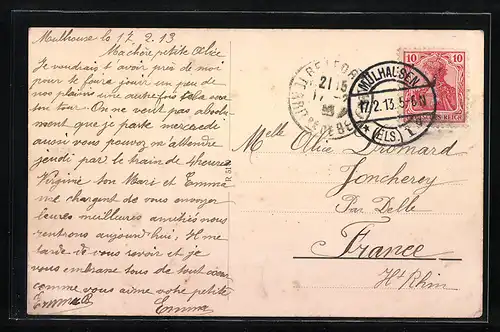 Mulhouse le 17. 2. 13
Ma chère petite Alice
Je voudrais t avoir près de moi
pour te faire jouir un peu de
nos plaisirs une autre fois cela sera
ton tour. On ne veut pas absolu-
ment que je parte mercredi
aussi vous pouvez m attendre
jeudi par le train de 4 heures
Virginie son Mari et Emma
me chargent de vous envoyer
leurs meilleures amitiés nous
rentrons aujourd'hui, Il me
tarde de vous revoir et je
vous embrasse tous de tout cœur
comme vous aime votre petite
Emma B. Emma
BELFORT
21 15
MÜLHAUSEN
17. 2. 13. 5-6 N
* (ELS.) 1
10 10
Melle Alice Dromard
Joncherey
Par Delle
France
Ht Rhin